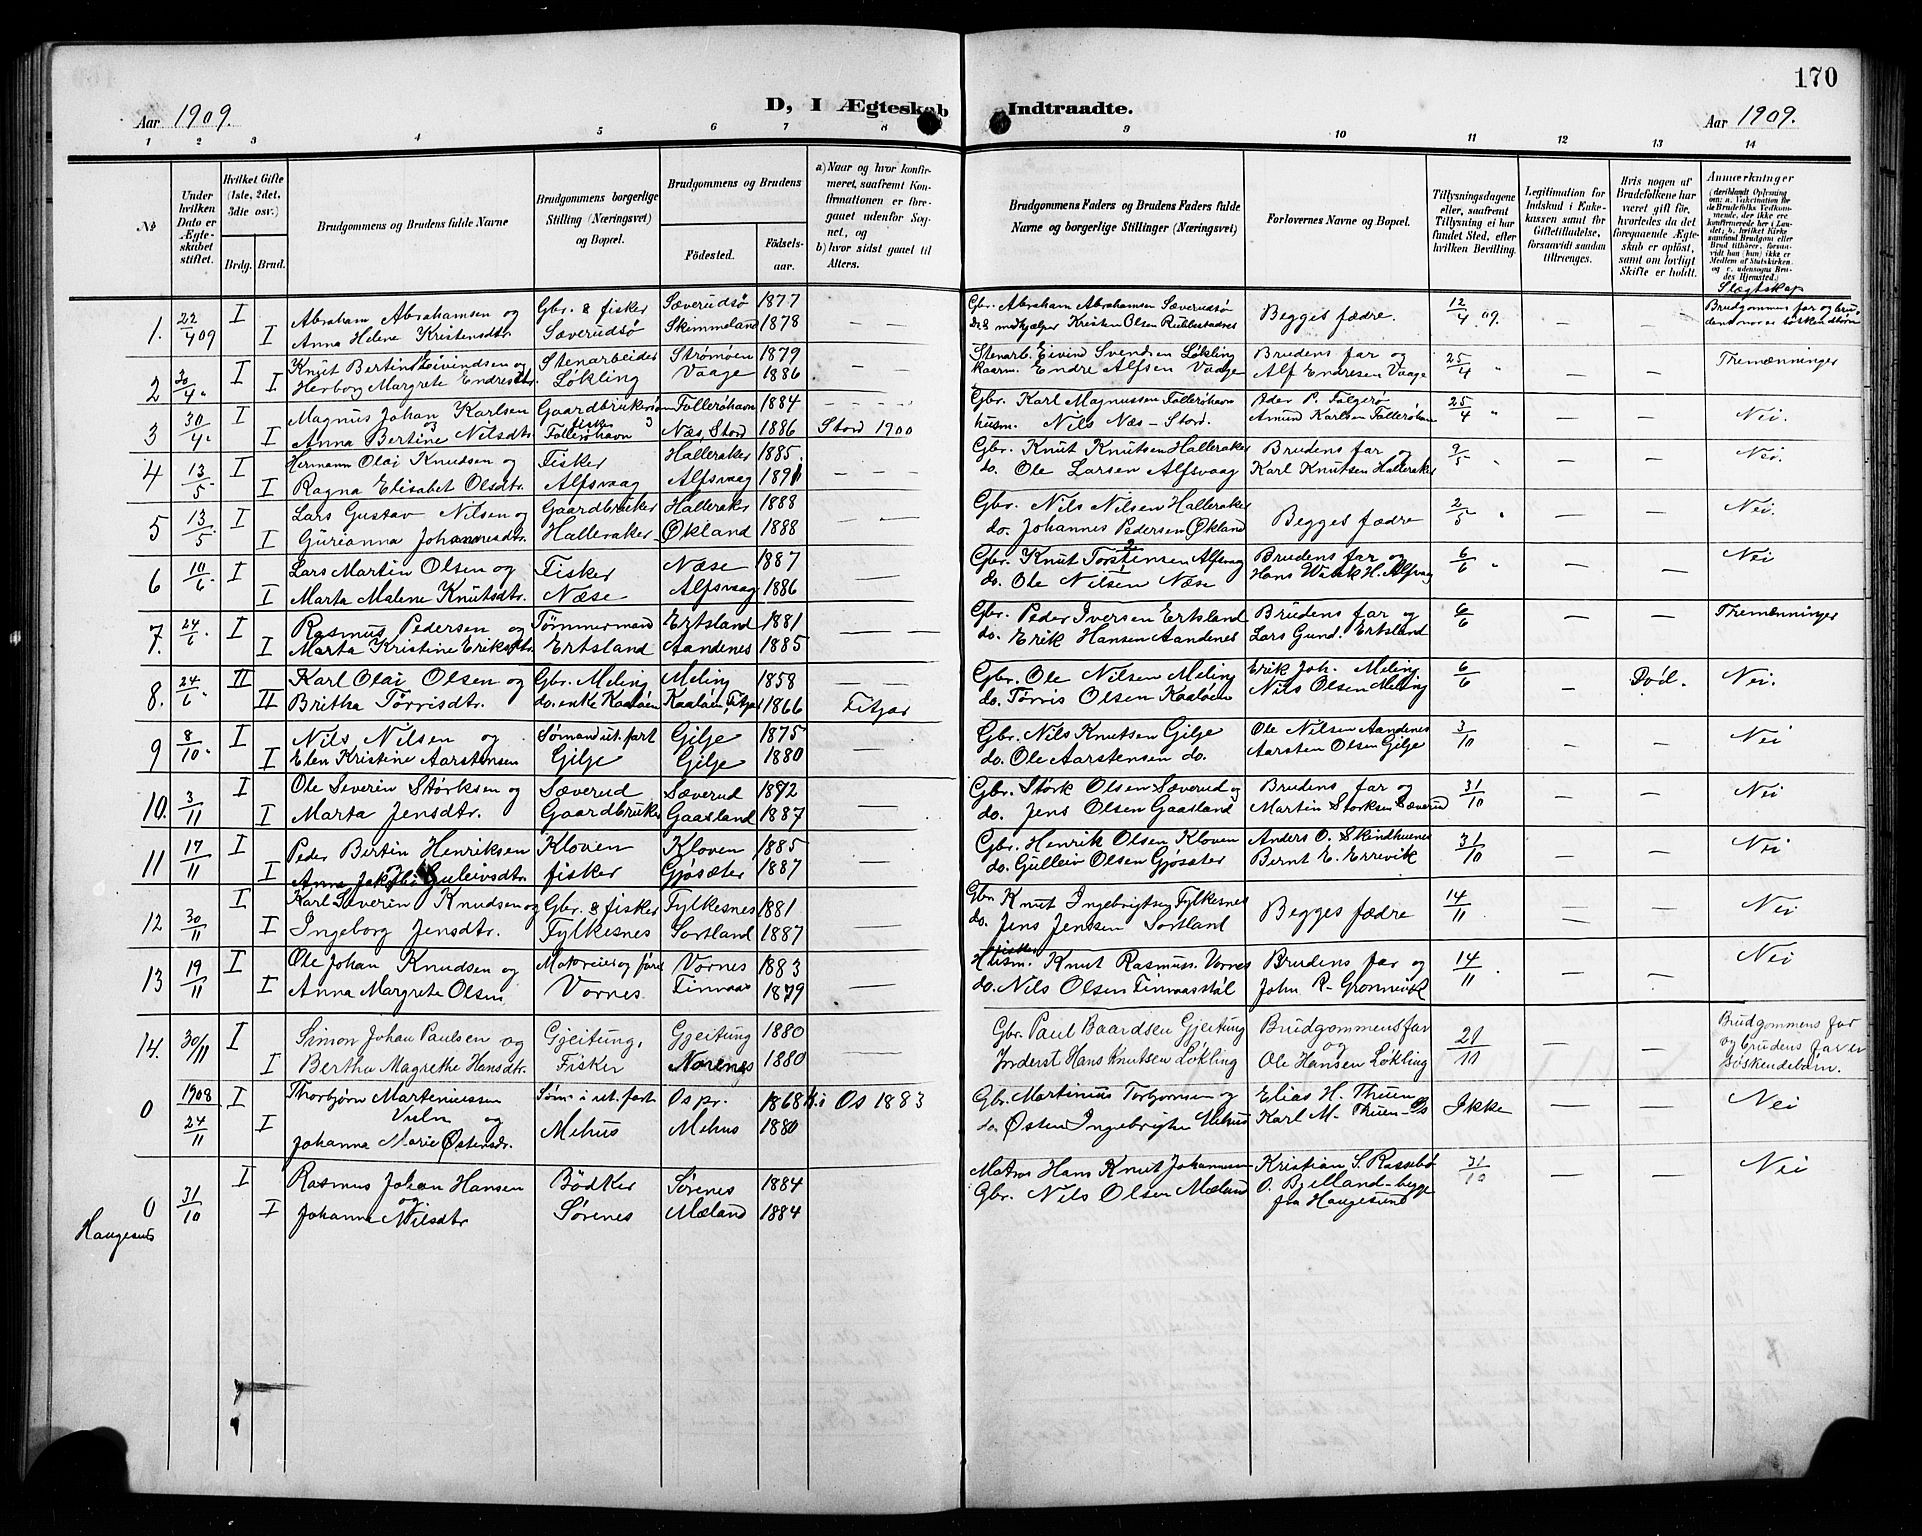 170
D, I Ægteskab Indtraadte.
Aar 1909. Aar 1909.
1 2 3 4 5 6 7 8 9 10 11 12 13 14
No
Under hvilken Dato er Ægteskabet stiftet.
Hvilket Gifte (1ste, 2det, 3die osv.)
Brdg. Brud.
Brudgommens og Brudens fulde Navne
Brudgommens borgerlige Stilling (Næringsvei) og Bopæl.
Brudgommens og Brudens
Fødested. Fødselsaar.
a) Naar og hvor konfirmeret, saafremt Konfirmationen er foregaaet udenfor Sognet, og
b) hvor sidst gaaet til Alters.
Brudgommens Faders og Brudens Faders fulde Navne og borgerlige Stillinger (Næringsvei)
Forlovernes Navne og Bopæl.
Tillysningsdagene eller, saafremt Tillysning ei har fundet Sted, efter hvilken Bevilling.
Legitimation for Indskud i Enkekassen samt for Giftetilladelse, forsaavidt saadan tiltrænges.
Hvis nogen af Brudefolkene har været gift før, hvorledes da det foregaaende Ægteskab er opløst, samt om lovligt Skifte er holdt.
Anmerkninger
(deriblandt Oplysning om: a. Vaccination for de Brudefolks Vedkommende, der ikke ere konfirmerede her i Landet; b. hvilket Kirkesamfund Brudgom eller Brud tilhører, forsaavidt han (hun) ikke er Medlem af Statskirken, og c. udensogns Brudes Hjemsted.)
Slægtskap
1. 22/4 09 I Abraham Abrahamsen og Gbr. & fisker Sæverudsø 1877 Gbr. Abraham Abrahamsen Sæverudsø Begges fædre. 12/4 09. — — Brudgommens far og bru-
I Anna Helene Kristensdtr. Sæverudsø Skimmeland 1878 — — Kristen Olsen dens mor er søskendebørn
2 30/4 " I Knut Bertin Eivindsen og Stenarbeider Strømøen 1879 Stenarb. Eivind Svendsen Løkling Brudens far og 25/4 " — — Tremænninger
I Herborg Margrete Endresdtr. Løkling Vaage 1886 — — Endre Alfsen Vaage Alf Endresen Vaage
3 30/4 " I Magnus Johan Karlsen og Gaardbrukersøn Follerøhavn 1884 — — — Gbr. Karl Magnussen Follerøhavn Peder P. Folgerø 25/4 " — — Nei.
I Anna Bertine Nilsdtr. fisker Follerøhavn Næs, Stord 1886 Stord 1900 husm. Nils Næs - Stord. Amund Karlsen Follerøhavn
4 13/5 I Hermann Olai Knudsen og Fisker Halleraker 1885. Gbr. Knut Knutsen Halleraker Brudens far og 9/5 " — — Nei.
I Ragna Elisabet Olsdtr. Alfsvaag Alfsvaag 1891 — — do. Ole Larsen Alfsvaag Karl Knutsen Halleraker
5 13/5. I Lars Gustav Nilsen og Gaardbruker Halleraker 1888 Gbr. Nils Nilsen Halleraker Begges fædre 2/5 " — — Nei.
I Gurianna Johannesdtr. Halleraker Økland 1888 — — do. Johannes Pedersen Økland
6 10/6 I Lars Martin Olsen og Fisker Næse 1887 Gbr. Knut Torstensen Alfsvaag 2 Brudens far og 6/6 " — — Nei
I Marta Malene Knutsdtr. Næse Alfsvaag 1886 — do. Ole Nilsen Næse 1 Hans H. Alfsvag
7. 24/6 . I Rasmus Pedersen og Tømmermand Ertsland 1881 Gbr. Peder Iversen Ertsland Brudens far og 6/6 — — Tremænninger
I Marta Kristine Eriksdtr. Ertsland Aandenes 1885 — do. Erik Hansen Aandenes Lars Gund. Ertsland
8. 24/6 . II Karl Olai Olsen og Gbr. Meling Meling 1858 — — Gbr. Ole Nilsen Meling Erik Joh. Meling 6/6 — Død. Nei.
II Britha Tørrisdtr. do. enke Kaaløen Kaaløen, Fitjar 1866 Fitjar do. Tørris Olsen Kaaløen Nils Olsen Meling
9 8/10 . I Nils Nilsen og Sømand ut. fart Gilje 1875 Gbr. Nils Knutsen Gilje Ole Nilsen Aandenes 3/10 — — Nei
I Elen Kristine Aarstensen Gilje Gilje 1880 — do. Ole Aarstensen do. Aarsten Olsen Gilje
10. 3/11 I Ole Severin Størksen og Sæverud Sæverud 1892 Gbr. Størk Olsen Sæverud og Brudens far og 31/10 — — Nei
I Marta Jensdtr. Gaardbruker Gaasland 1887 — do. Jens Olsen Gaasland Martin Størksen Sæverud
11 17/11 I Peder Bertin Henriksen Kloven Kloven 1885 Gbr. Henrik Olsen Kloven Anders O. Skindhuenes 31/10 — — Nei
I Anna Guleivsdtr. fisker Gjøsæter 1887 — do. Gulleiv Olsen Gjøsæter Bernt E. Errevik
12 30/11 I Karl Severin Knudsen og Gbr. & fisker Fylkesnes 1881 Gbr. Knut Ingebrigtsen Fylkesnes Begges fædre 14/11 — — Nei
I Ingeborg Jensdtr. Fylkesnes Sortland 1887 — do. Jens Jensen Sortland
13 19/11 I Ole Johan Knudsen og Vornes 1883 Husm. Knut Rasmuss. Vornes Brudens far og 14/11 — — Nei
I Anna Margrete Olsen Vornes. Finnaas 1879 — do. Nils Olsen Finnaasstøl John R. Grønnevik
14. 30/11 I Simon Johan Paulsen og Gjeitung, Gjeitung 1880 Gbr. Paul Baardsen Gjeitung Brudgommens far og 21/10 Brudgommens far
I Bertha Magrethe Hansdtr. Fisker Norenes 1880 — Jorderst Hans Knutsen Løkling Ole Hansen Løkling og brudens far er søskendebørn.
0 1908 24/11 I Thorbjørn Marteniussen og Søm. i ut. fart Os pr. 1868 K. i Os 1883 Gbr. Martinius Torbjørnsen og Elias H. Thuen Ikke — — Nei
I Johanna Marie Østensdr. Mehus Mehus 1880 do. Østen Ingebrigtsen Mehus Karl M. Thuen - Os
0 31/10 I Rasmus Johan Hansen og Bødker Sørenes 1884 Matros Hans Knut Johannesen Kristian S. Rossebø 31/10 — — Nei
Haugesund I Johanna Nilsdtr Sørenes Mæland 1884 Gbr. Nils Olsen Mæland O. Bjelland - begge fra Haugesund